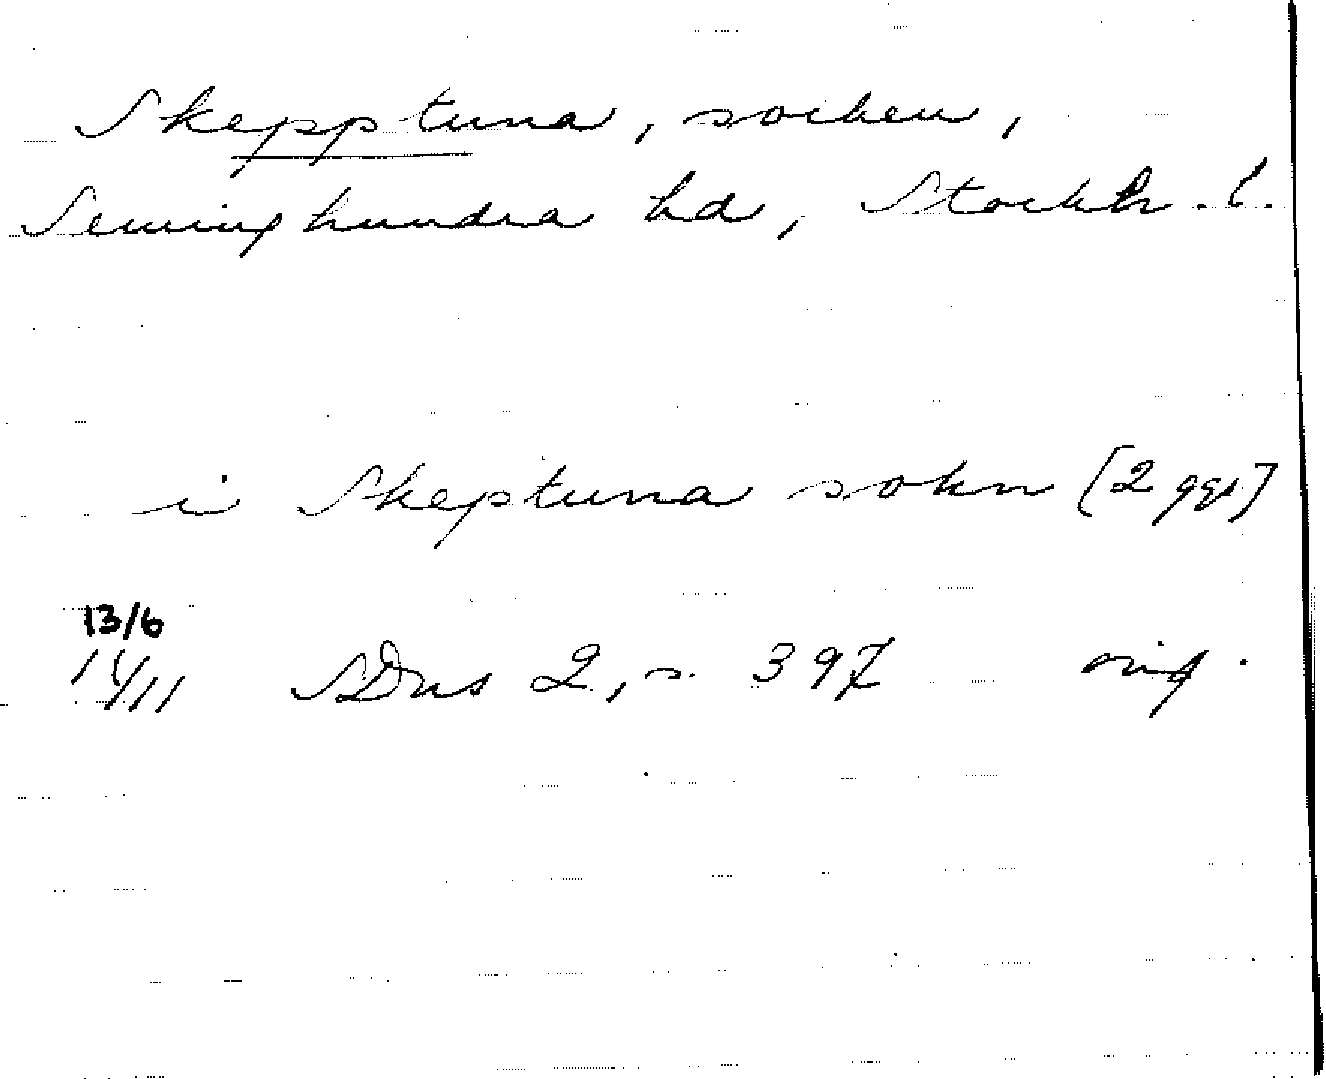 Skepptuna, socken,
Seminghundra hd, Stockh. l.
i Skeptuna sokn [2 ggr]
13/6
14/11 SDns 2, s. 397 orig.